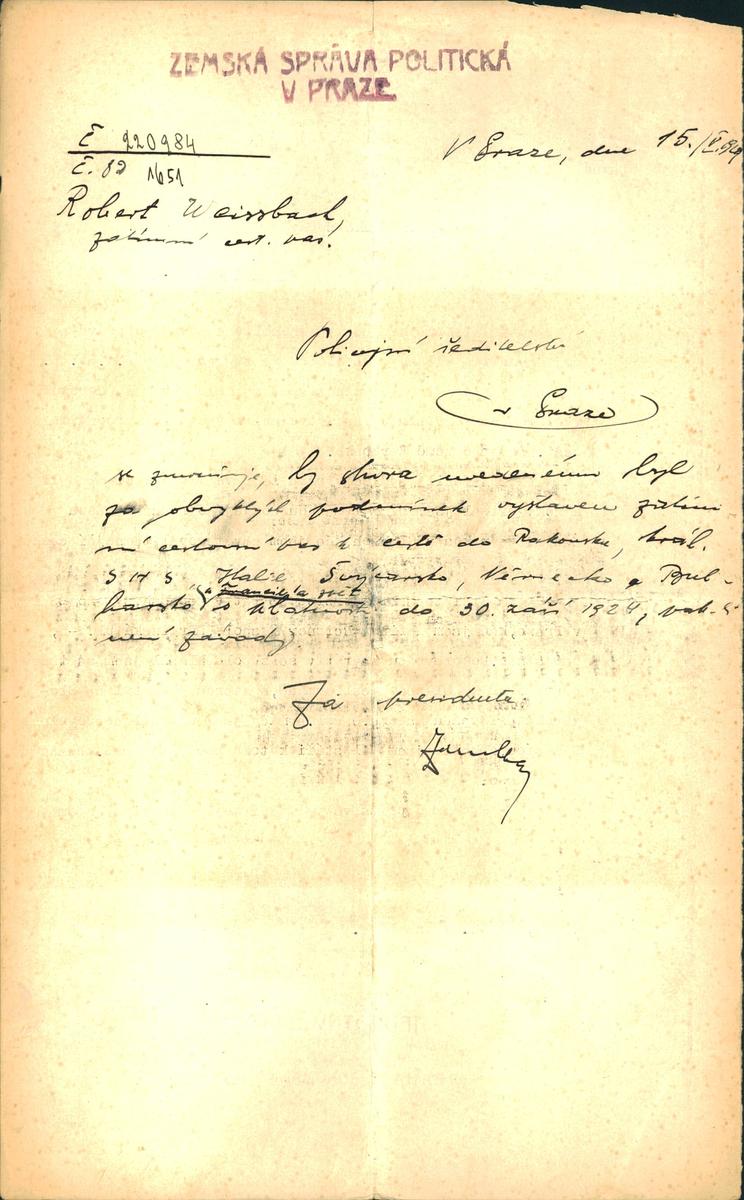 ZEMSKÁ SPRÁVA POLITICKÁ
V PRAZE
Č 220984
Č. 8D 1651
V Praze, dne 15./V. 1924
Robert Weissbach,
zatímní cest. pas.
Policejní ředitelství
v Praze
se zmocňuje, by shora uvedenému byl
za obvyklých podmínek vystaven zatím
ní cestovní pas k cestě do Rakouska, král.
S H S Italie Švýcarsko, Německo a Bul-
harsko s platností do 30. září 1924,
není závady.
Za presidenta: